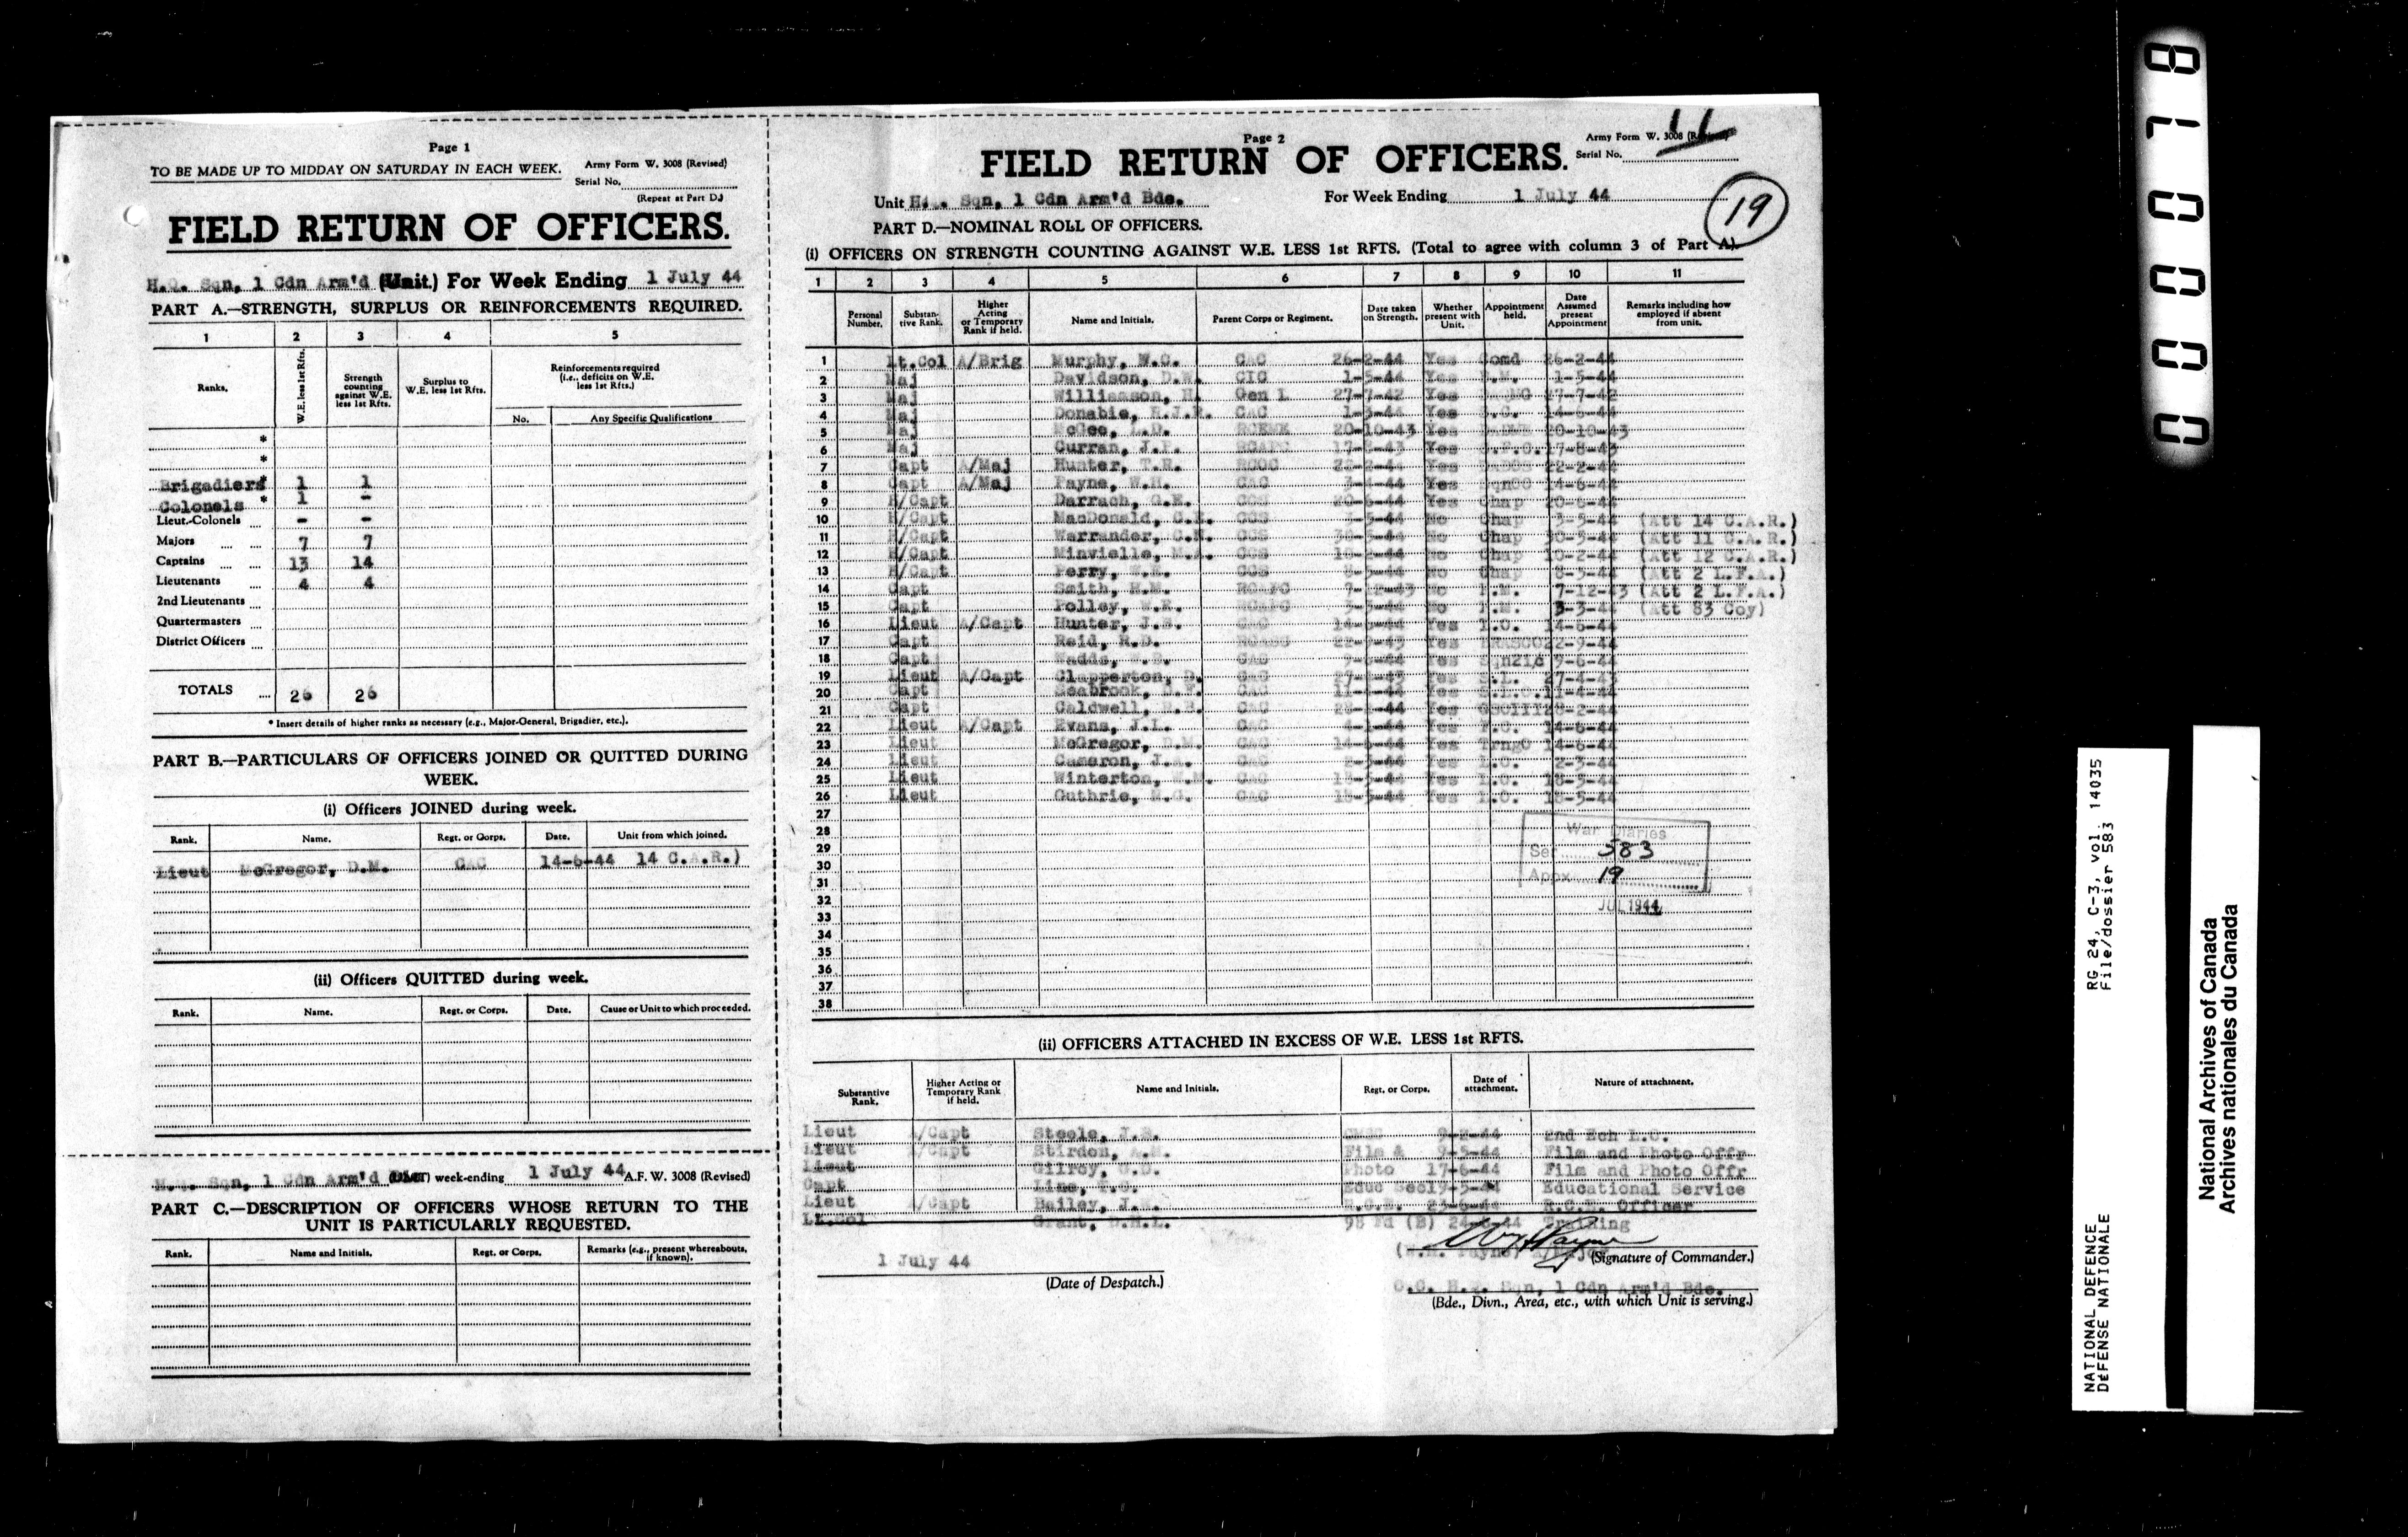 Page 1
TO BE MADE UP TO MIDDAY ON SATURDAY IN EACH WEEK. Army Form W. 3008 (Revised)
Serial No.
(Repeat at Part D.)
FIELD RETURN OF OFFICERS.
H.Q. Sqn, 1 Cdn Arm'd (Unit.) For Week Ending 1 July 44
PART A.—STRENGTH, SURPLUS OR REINFORCEMENTS REQUIRED.
1 2 3 4 5
Ranks. W.E. less 1st Rfts. Strength counting against W.E. less 1st Rfts. Surplus to W.E. less 1st Rfts. Reinforcements required (i.e., deficits on W.E. less 1st Rfts.)
No. Any Specific Qualifications
*
*
Brigadiers* 1 1
Colonels * 1 -
Lieut.-Colonels .... - -
Majors .... .... 7 7
Captains .... .... 13 14
Lieutenants .... 4 4
2nd Lieutenants ....
Quartermasters ....
District Officers ....
TOTALS .... 26 26
* Insert details of higher ranks as necessary (e.g., Major-General, Brigadier, etc.).
PART B.—PARTICULARS OF OFFICERS JOINED OR QUITTED DURING
WEEK.
(i) Officers JOINED during week.
Rank. Name. Regt. or Corps. Date. Unit from which joined.
Lieut McGregor, D.M. CAC 14-6-44 14 C.A.R.)
(ii) Officers QUITTED during week.
Rank. Name. Regt. or Corps. Date. Cause or Unit to which proceeded.
H.Q. Sqn, 1 Cdn Arm'd week-ending 1 July 44 A.F. W. 3008 (Revised)
PART C.—DESCRIPTION OF OFFICERS WHOSE RETURN TO THE
UNIT IS PARTICULARLY REQUESTED.
Rank. Name and Initials. Regt. or Corps. Remarks (e.g., present whereabouts, if known).
Page 2
11
Army Form W. 3008
FIELD RETURN OF OFFICERS. Serial No.
Unit H.Q. Sqn, 1 Cdn Arm'd Bde. For Week Ending 1 July 44
19
PART D.—NOMINAL ROLL OF OFFICERS.
(i) OFFICERS ON STRENGTH COUNTING AGAINST W.E. LESS 1st RFTS. (Total to agree with column 3 of Part A).
1 2 3 4 5 6 7 8 9 10 11
Personal Number. Substantive Rank. Higher Acting or Temporary Rank if held. Name and Initials. Parent Corps or Regiment. Date taken on Strength. Whether present with Unit. Appointment held. Date Assumed present Appointment Remarks including how employed if absent from unit.
1 Lt.Col A/Brig Murphy, W.C. CAC 26-2-44 Yes Comd 26-2-44
2 Maj Davidson, D.W. CIC 1-5-44 Yes B.M. 1-5-44
3 Maj Williamson, H. Gen L 27-7-42 Yes 27-7-42
4 Maj Donabie, CAC 1-3-44 Yes 14-6-44
5 Maj McGee, L.D. RCEME 20-10-43 Yes 20-10-43
6 Maj Curran, J.P. RCAPC 17-8-43 Yes 17-8-43
7 Capt A/Maj Hunter, T.R. RCOC 22-2-44 Yes 22-2-44
8 Capt A/Maj Payne, W.H. CAC Yes SqnOC 14-6-44
9 H/Capt Darrach, G.E. CCS 20-6-44 Yes Chap 20-6-44
10 H/Capt MacDonald, CCS 3-5-44 No Chap 3-5-44 (Att 14 C.A.R.)
11 H/Capt Warrander, C.N. CCS 30-5-44 No Chap 30-5-44 (Att 11 C.A.R.)
12 H/Capt Minvielle, M.A. CCS 10-2-44 No Chap 10-2-44 (Att 12 C.A.R.)
13 H/Capt Perry, CCS 8-5-44 No Chap 8-5-44 (Att 2 L.F.A.)
14 Capt Smith, H.M. RCAPC 7-12-43 No P.M. 7-12-43 (Att 2 L.F.A.)
15 Capt Polley, W.R. RCAPC 3-3-44 No P.M. 3-3-44 (Att 83 Coy)
16 Lieut A/Capt Hunter, CAC 14-6-44 Yes 14-6-44
17 Capt Reid, R.D. RCASC Yes BRASCO
18 Capt CAC Yes Sqn2i/c 9-6-44
19 Lieut A/Capt Clapperton, CAC 27-4-43 Yes 27-4-43
20 Capt Seabrook, CAC Yes 11-4-44
21 Capt Caldwell, CAC Yes GSOIII 28-2-44
22 Lieut A/Capt Evans, J.L. CAC Yes 14-6-44
23 Lieut McGregor, D.M. CAC 14-6-44 Yes TrngO 14-6-44
24 Lieut Cameron, CAC 2-3-44 Yes L.O. 2-3-44
25 Lieut Winterton, CAC 18-5-44 Yes L.O. 18-5-44
26 Lieut Guthrie, CAC 18-5-44 Yes L.O. 18-5-44
27
28
29
30
31
32
33
34
35
36
37
38
War Diaries
Ser 583
Appx 19
JUL 1944
(ii) OFFICERS ATTACHED IN EXCESS OF W.E. LESS 1st RFTS.
Substantive Rank. Higher Acting or Temporary Rank if held. Name and Initials. Regt. or Corps. Date of attachment. Nature of attachment.
Lieut A/Capt Steele, J.S. 9-2-44 2nd Ech L.O.
Lieut A/Capt Stirdon, A.M. Film & 9-5-44 Film and Photo Offr
Lieut Gilroy, Photo 17-6-44 Film and Photo Offr
Capt Educ Sec 19-5-44 Educational Service
Lieut A/Capt Bailey, R.C.E. 23-6-44 R.C.E. Officer
Lt.Col Grant, D.H.L. 98 Fd (B) 24-6-44 Training
1 July 44
(Date of Despatch.)
(W.H. Payne) A/Major (Signature of Commander.)
O.C. H.Q. Sqn, 1 Cdn Arm'd Bde.
(Bde., Divn., Area, etc., with which Unit is serving.)
0000078
NATIONAL DEFENCE RG 24, C-3, vol. 14035
DÉFENSE NATIONALE File/dossier 583
National Archives of Canada
Archives nationales du Canada